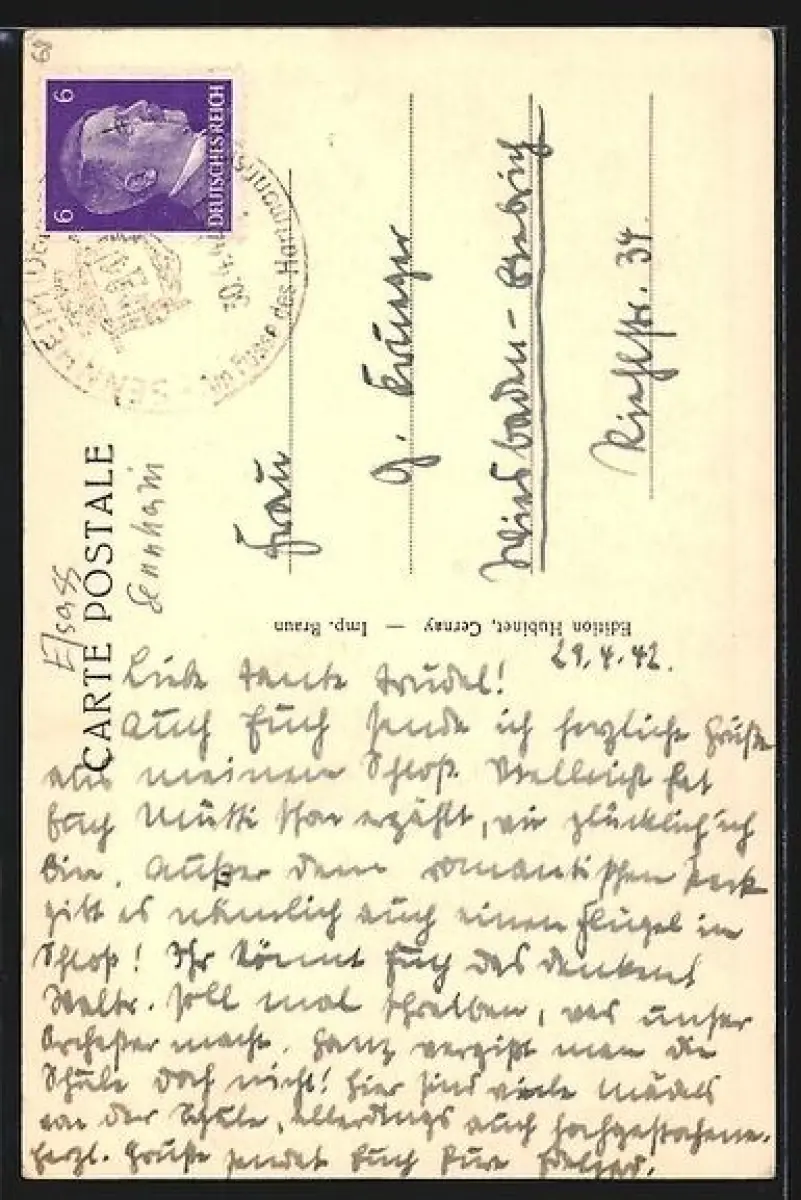 68
6 6
DEUTSCHES REICH
SENNHEIM
30.4.42
Am Fusse des Hartmanns
CARTE POSTALE
Elsass
Sennheim
Frau
G. Krüger
Wiesbaden-Biebrich
Riehlstr. 34.
Edition Hubinet, Cernay — Imp. Braun
29.4.42.
Liebe Tante Trudel!
Auch Euch sende ich herzliche Grüße
aus meinem Schloß. Vielleicht hat
Euch Mutti schon erzählt, wie glücklich ich
bin. Außer dem romantischen Park
gibt es nämlich auch einen Flügel im
Schloß! Ihr könnt Euch das denken!
soll mal schreiben, was unser
Orchester macht. Ganz vergißt man die
Schule doch nicht! Hier sind viele Mädels
von der Schule, allerdings auch hochgestochene.
Herzl. Grüße sendet Euch Eure